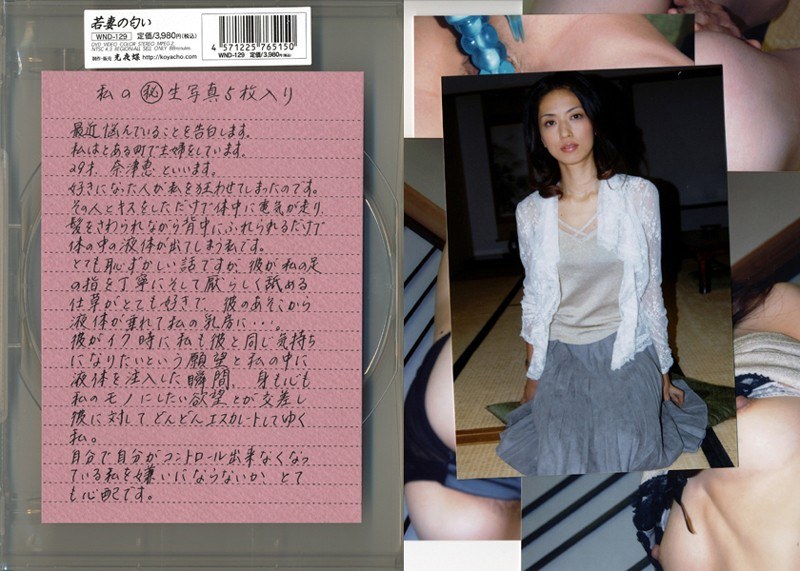 若妻の匂い
WND-129 定価/3,980円(税込)
DVD VIDEO COLOR STEREO MPEG-2
制作・販売 光夜蝶 http://koyacho.com
4 571225 765150
WND-129 定価/3,980円(税込)
私の㊙生写真5枚入り
最近悩んでいることを告白します。
私はとある町で主婦をしています。
29才、奈津恵といいます。
好きになった人が私を狂わせてしまったのです。
その人とキスをしただけで体中に電気が走り、
髪をさわられながら背中にふれられるだけで
体の中の液体が出てしまう私です。
とても恥ずかしい話ですが、彼が私の足
の指を丁寧にそして厭らしく舐める
仕草がとても好きで、彼のあそこから
液体が垂れて私の乳房に・・・。
彼がイク時に私も彼と同じ気持ち
になりたいという願望と私の中に
液体を注入した瞬間、身も心も
私のモノにしたい欲望とが交差し
彼に対して、どんどんエスカレートしてゆく
私。
自分で自分がコントロール出来なくなっ
ている私を嫌いにならないか、とて
も心配です。